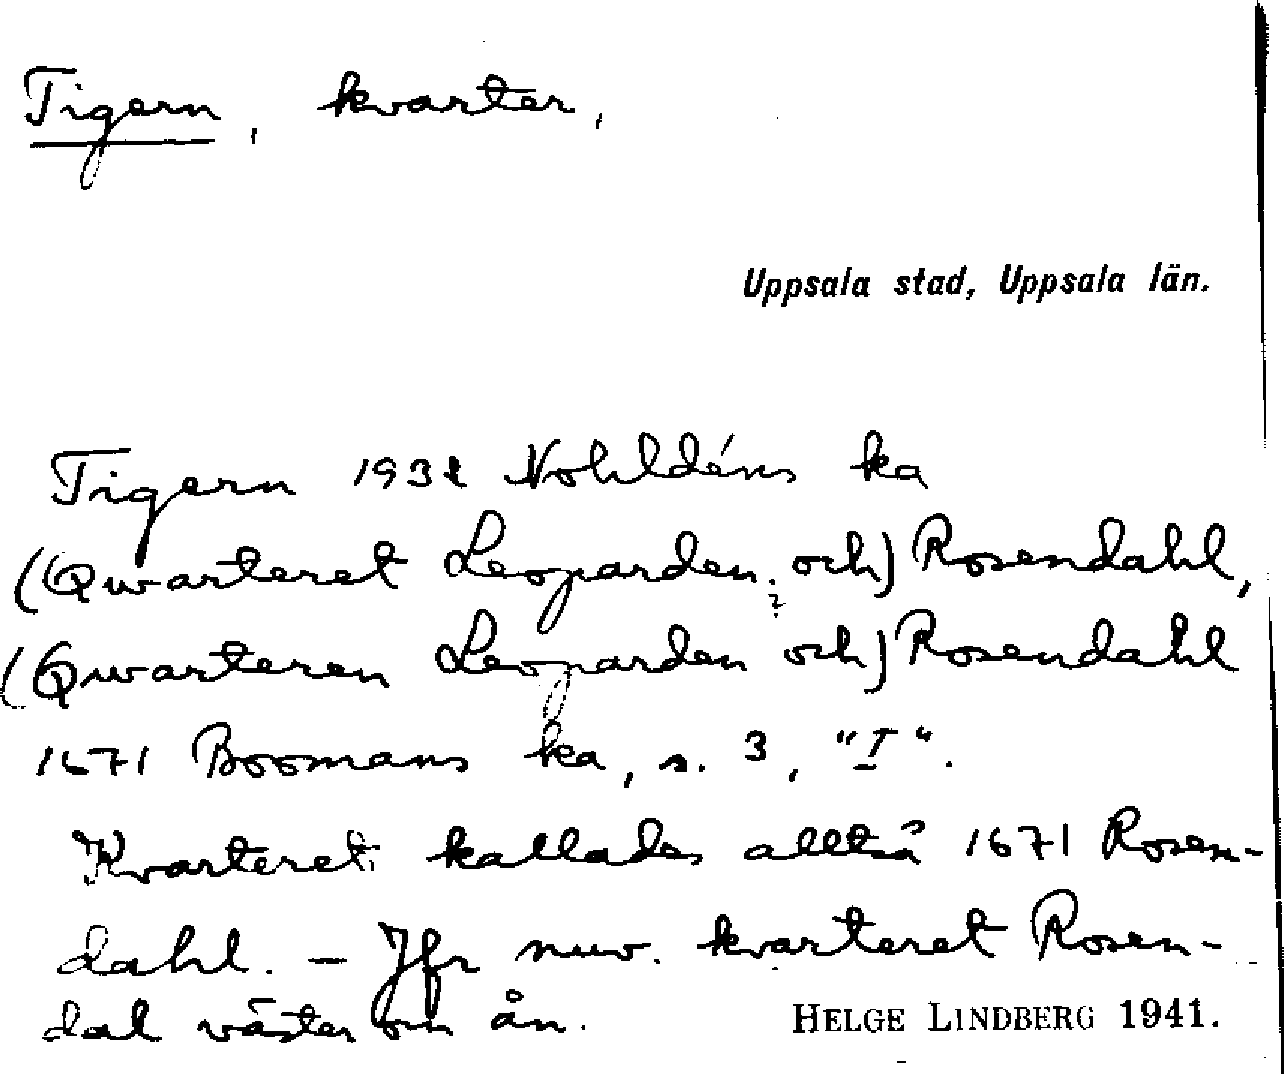 Tigern, kvarter,
Uppsala stad, Uppsala län.
Tigern 1932 Nohldéns ka
(Qwarteret Leoparden och) Rosendahl,
?
(Qwarteren Leoparden och) Rosendahl
1671 Boomans ka, s. 3, "I".
Kvarteret kallades alltså 1671 Rosen-
dahl. – Jfr nuv. kvarteret Rosen-
dal väster om ån.
HELGE LINDBERG 1941.